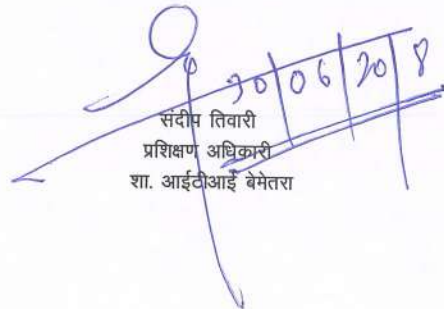 30|06|20 8
संदीप तिवारी
प्रशिक्षण अधिकारी
शा. आईटीआई बेमेतरा